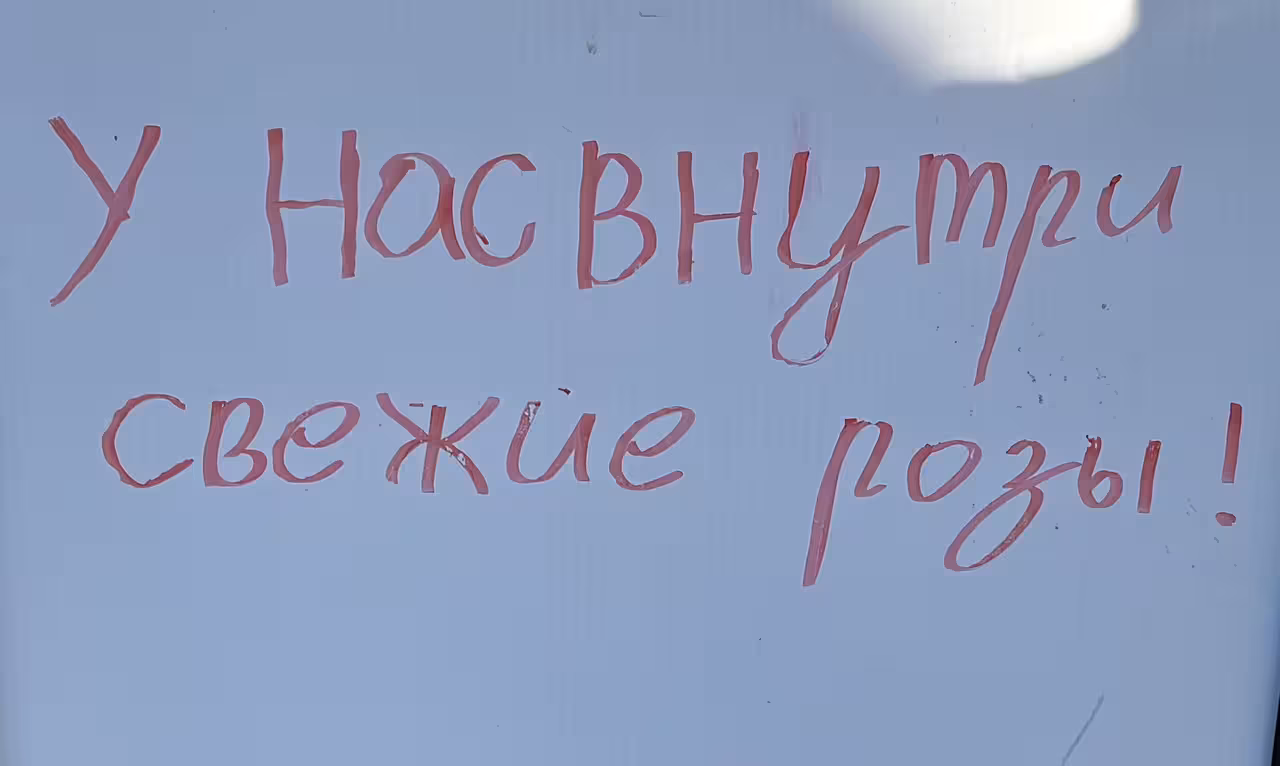 У нас внутри
свежие розы!